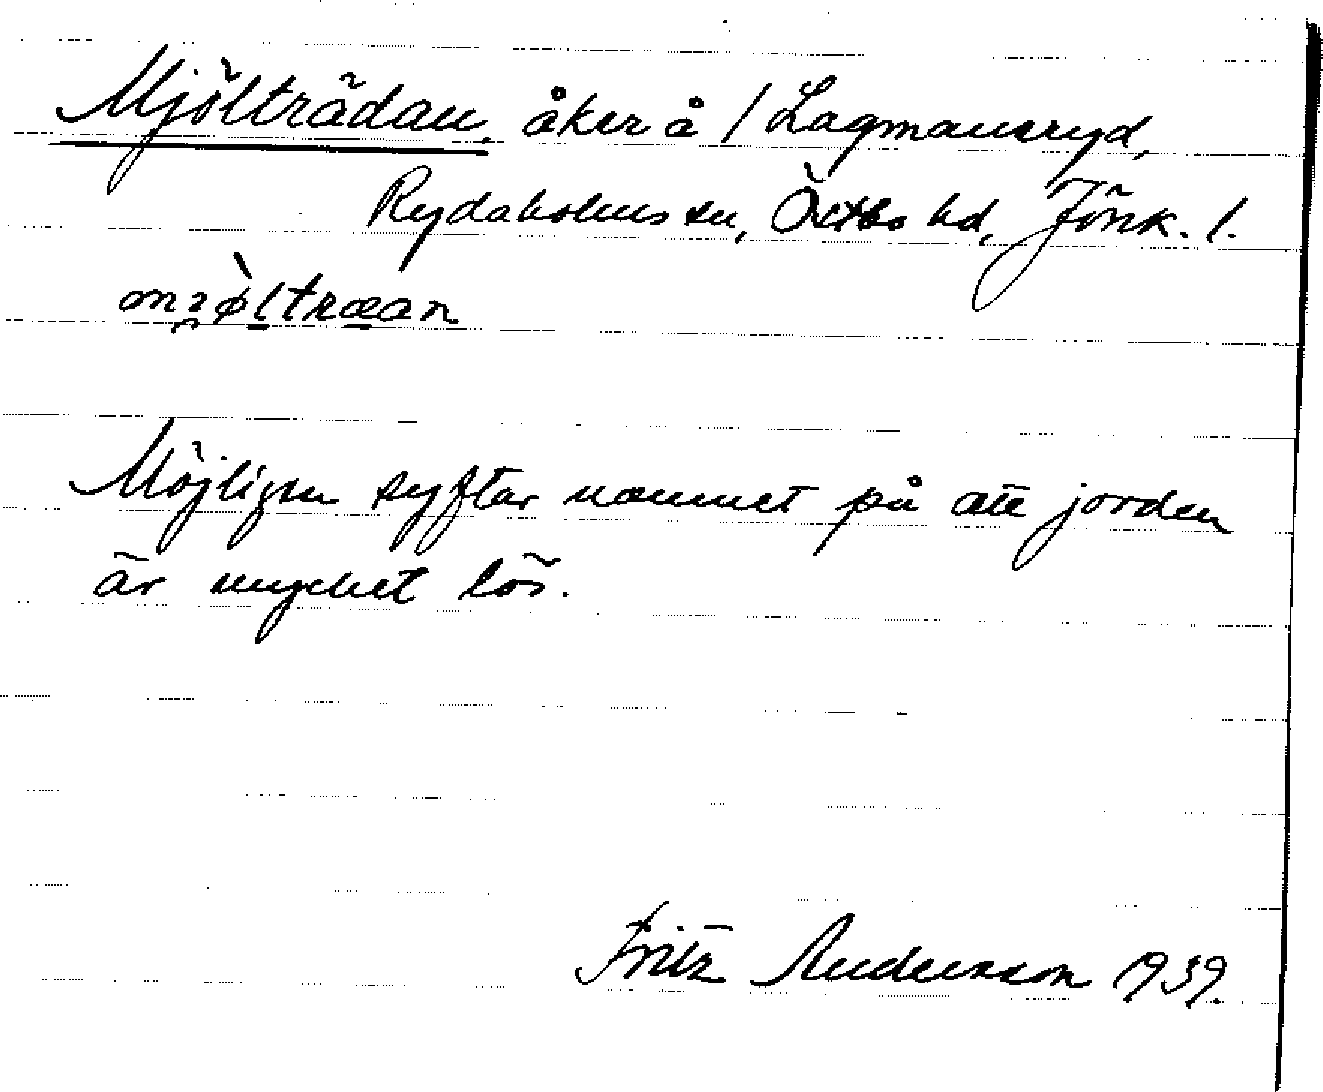 Mjölträdan, åker å /Lagmansryd,
Rydaholms sn, Östbo hd, Jönk. l.
mjø̀ltræan
Möjligen syftar namnet på att jorden
är mycket lös.
Fritz Andersson 1939.